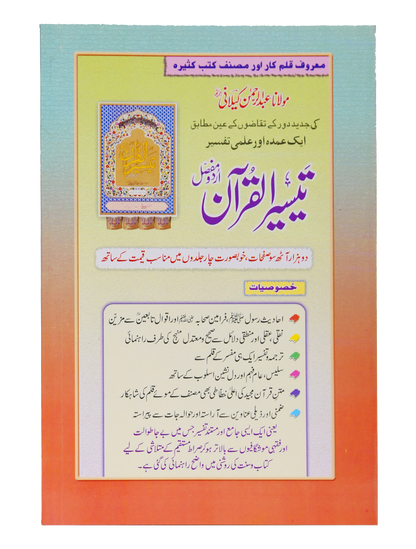 معروف قلم کار اور مصنف کتب کثیرہ
مولانا عبدالرحمٰن کیلانی
کی جدید دور کے تقاضوں کے عین مطابق
ایک عمدہ اور علمی تفسیر
تیسیر القرآن اردو مفصل
دو ہزار آٹھ سو صفحات، خوبصورت چار جلدوں میں مناسب قیمت کے ساتھ
خصوصیات
احادیث رسول ﷺ، فرامین صحابہ اور اقوال تابعین سے مزین
نقلی، عقلی اور منطقی دلائل سے صحیح و معتدل منہج کی طرف راہنمائی
ترجمہ و تفسیر ایک ہی مفسر کے قلم سے
سلیس، عام فہم اور دل نشین اسلوب کے ساتھ
متن قرآن مجید کی اعلیٰ خطاطی بھی مصنف کے موئے قلم کی شاہکار
ضمنی اور ذیلی عناوین سے آراستہ اور حوالہ جات سے پیراستہ
یعنی ایک ایسی جامع اور مستند تفسیر جس میں بے جا طوالت
اور فقہی موشگافیوں سے بالاتر ہو کر صراط مستقیم کے متلاشی کے لیے
کتاب و سنت کی روشنی میں واضح راہنمائی کی گئی ہے۔